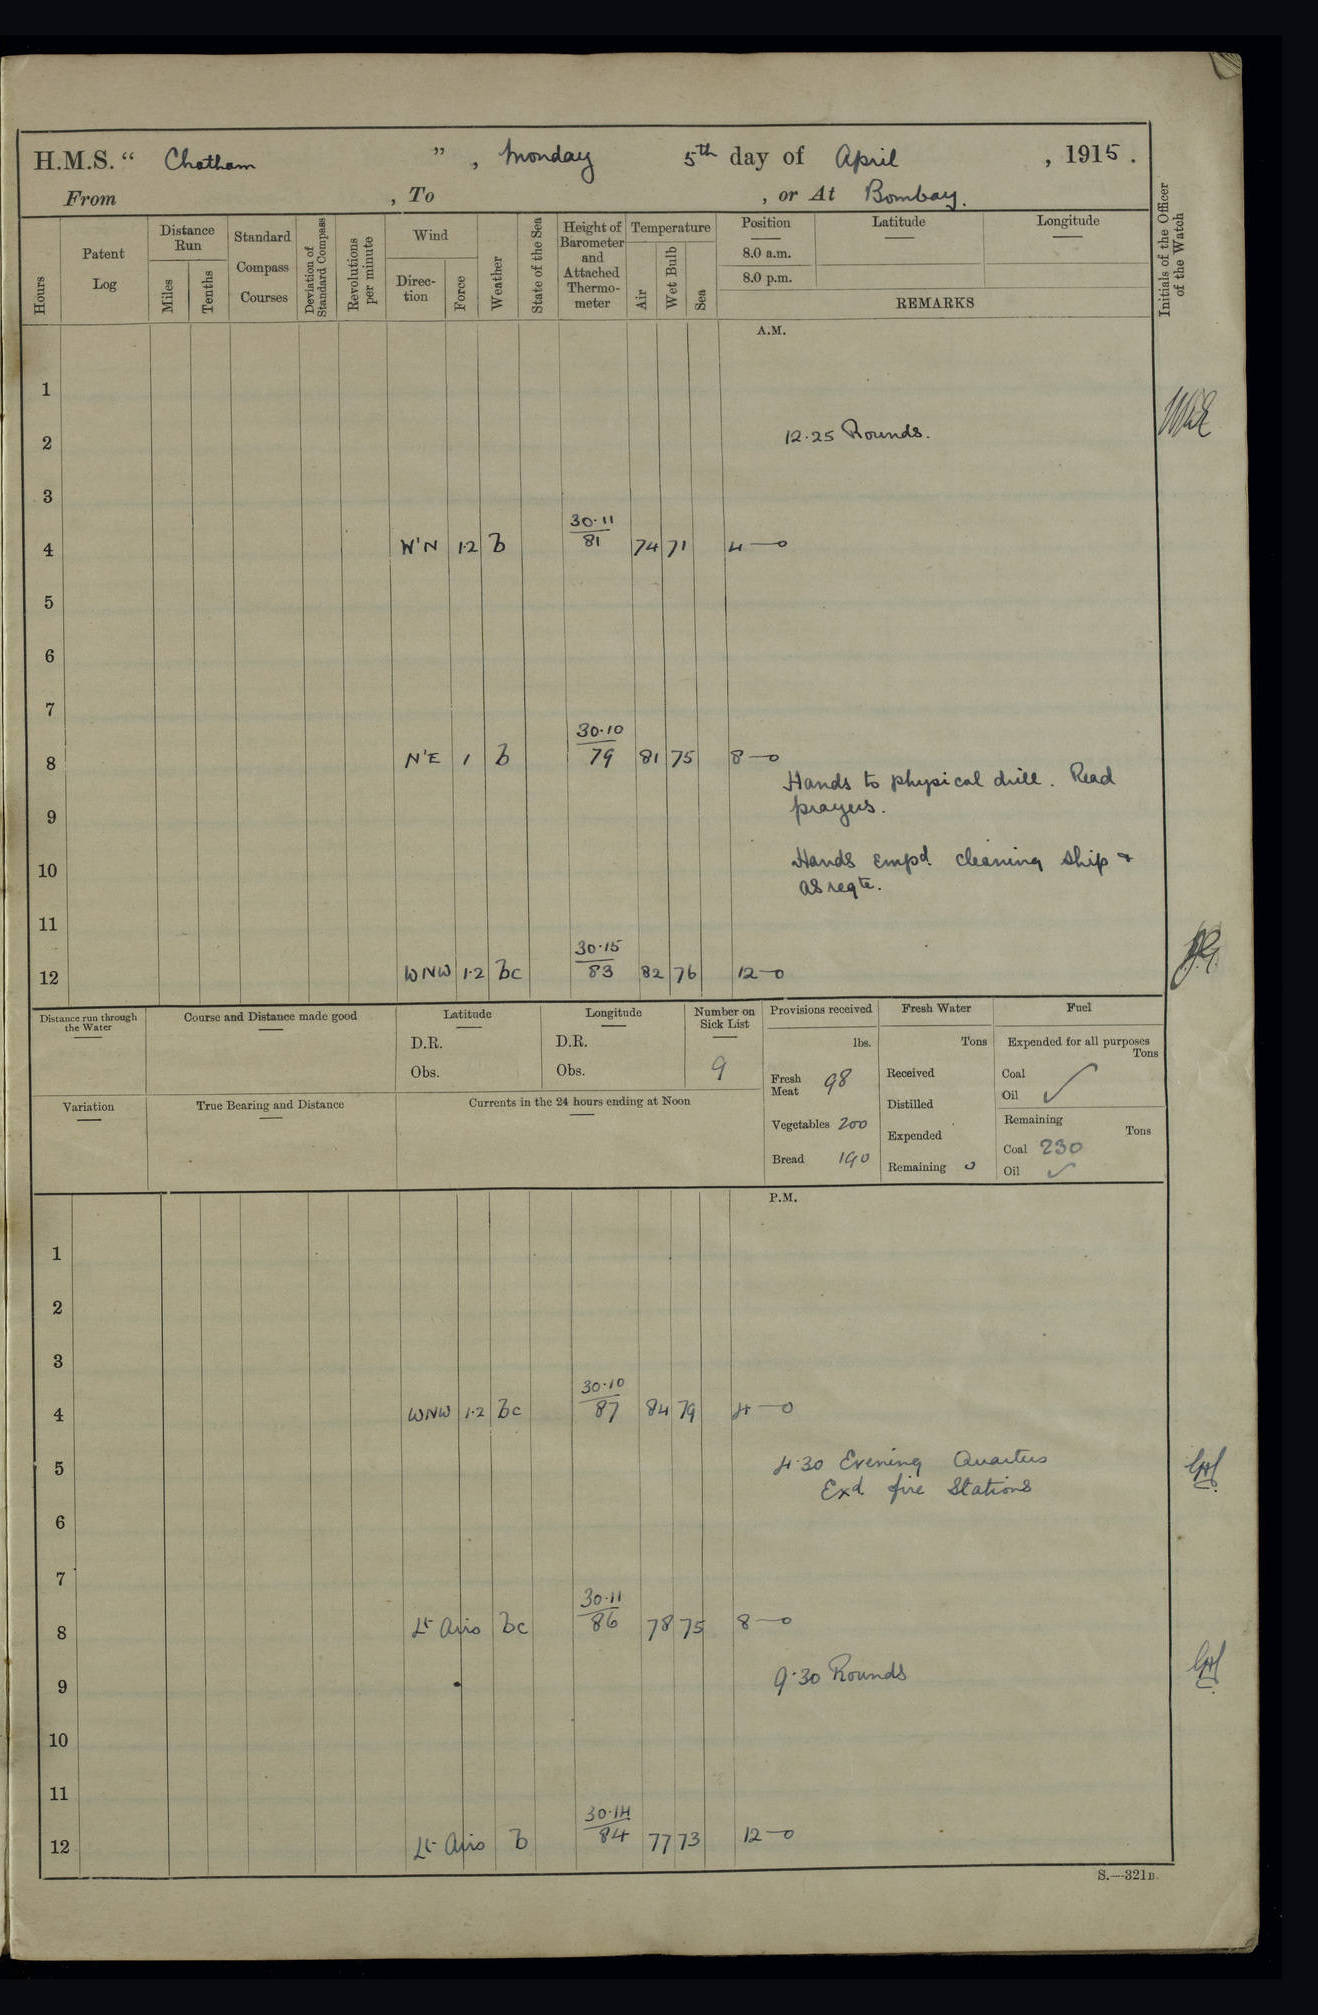 H.M.S. “ Chatham ” , Monday 5th day of April , 1915 .
From , To , or At Bombay.
Hours
Patent Log
Distance Run
Miles
Tenths
Standard Compass Courses
Deviation of Standard Compass
Revolutions per minute
Wind
Direc-tion
Force
Weather
State of the Sea
Height of Barometer and Attached Thermo-meter
Temperature
Air
Wet Bulb
Sea
Position
8.0 a.m.
8.0 p.m.
Latitude
Longitude
REMARKS
Initials of the Officer of the Watch
A.M.
1
2 12.25 Rounds.
3
4 W'N 1.2 b 30.11/81 74 71 4—0
5
6
7
8 N'E 1 b 30.10/79 81 75 8—0
Hands to physical drill. Read
9 prayers.
10 Hands empd. cleaning ship +
as reqte.
11
12 WNW 1.2 bc 30.15/83 82 76 12—0
Distance run through the Water
Course and Distance made good
Latitude
D.R.
Obs.
Longitude
D.R.
Obs.
Number on Sick List
9
Provisions received
lbs.
Fresh Meat 98
Vegetables 200
Bread 190
Fresh Water
Tons
Received
Distilled
Expended
Remaining
Fuel
Expended for all purposes
Tons
Coal
Oil ✓
Remaining
Tons
Coal 230
Oil ✓
Variation
True Bearing and Distance
Currents in the 24 hours ending at Noon
P.M.
1
2
3
4 WNW 1.2 bc 30.10/87 84 79 4—0
5 4.30 Evening Quarters
Exd fire Stations
6
7
8 Lt Airs bc 30.11/86 78 75 8—0
9 9.30 Rounds
10
11
12 Lt Airs b 30.14/84 77 73 12—0
S.—321B.